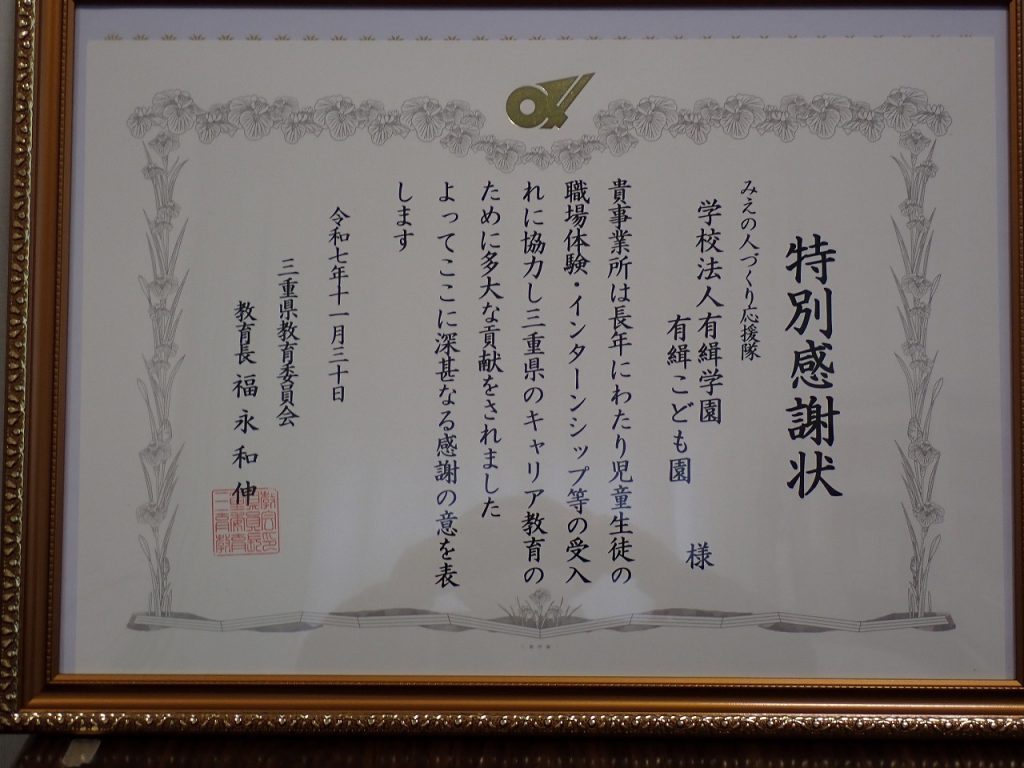 特別感謝状
みえの人づくり応援隊
学校法人有緝学園
有緝こども園
様
貴事業所は長年にわたり児童生徒の
職場体験・インターンシップ等の受入
れに協力し三重県のキャリア教育の
ために多大な貢献をされました
よってここに深甚なる感謝の意を表
します
令和七年十一月三十日
三重県教育委員会
教育長 福永和伸